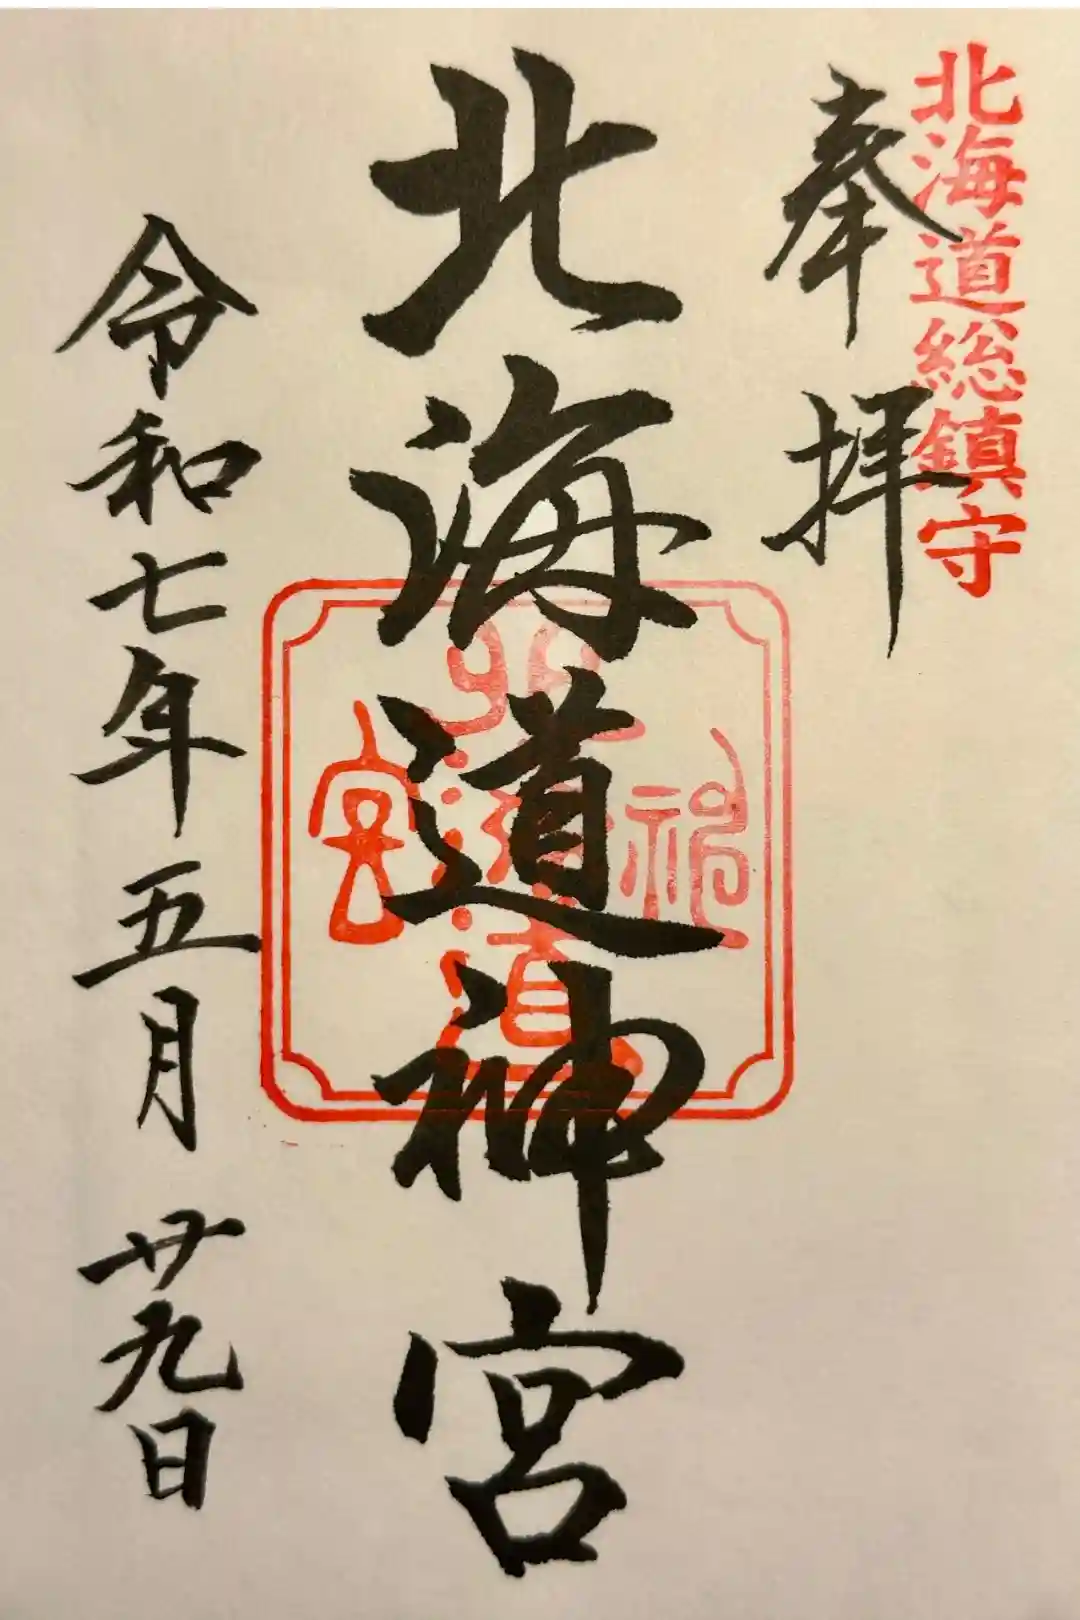 北海道総鎮守
奉拝
北海道神宮
北海道神宮
令和七年五月廿九日